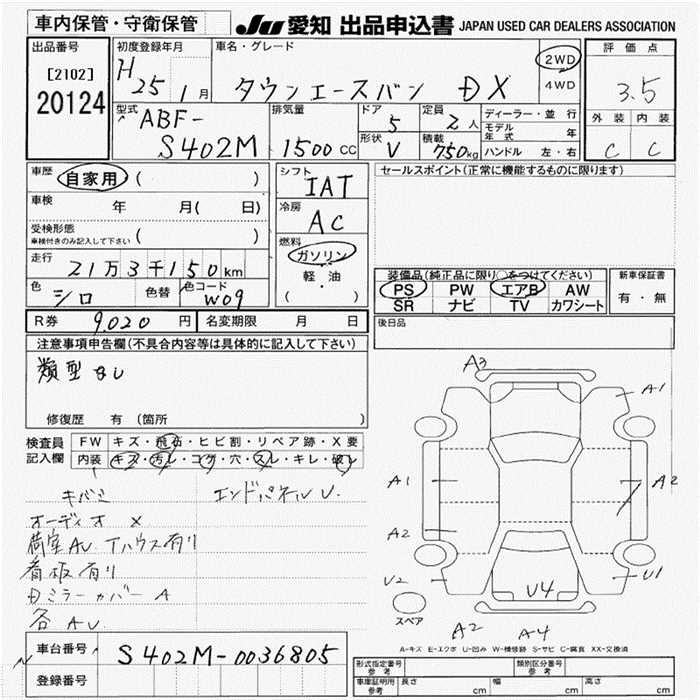 車内保管・守衛保管 JU 愛知 出品申込書 JAPAN USED CAR DEALERS ASSOCIATION
出品番号 初度登録年月 車名・グレード 2WD 評価点
[2102] H25 1月 タウンエースバン DX 4WD 3.5
20124
型式 排気量 ドア 定員 ディーラー・並行 外装 内装
ABF- 5 2人 モデル年式 年
S402M 1500CC 形状 V 積載 750kg ハンドル 左・右 C C
車歴 自家用 ( ) シフト IAT セールスポイント(正常に機能するものに限ります)
車検 年 月( 日) 冷房 AC
受検形態 ( )
車検付きのみ記入して下さい
燃料 ガソリン
走行 21万3千150km 軽・油
( ・ )
装備品(純正品に限り○をつけてください) 新車保証書
色 シロ 色替 色コード W09
PS PW エアB AW 有・無
SR ナビ TV カワシート
R券 9,020円 名変期限 月 日 後日品
注意事項申告欄(不具合内容等は具体的に記入して下さい)
類型
修復歴 有 (箇所 )
検査員 FW キズ・飛石・ヒビ割・リペア跡・X要
記入欄 内装 キズ・汚レ・コゲ・穴・スレ・キレ・破レ
キバミ エンドパネルU.
オーディオ X
荷室AU Tハウス有り
看板有り
Dミラーカバー A
各AU
A3
A1
A1 A2
A2
U2 U4 U1
スペア
A2 A4
A-キズ E-エクボ U-凹み W-補修跡 S-サビ C-腐食 XX-交換済
車台番号 S402M-0036805
登録番号
形式指定番号 参考 類別区分番号 参考
車庫証明用 参考 長さ cm 幅 cm 高さ cm